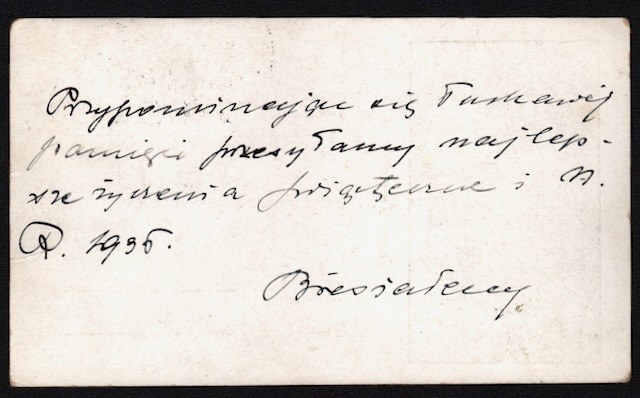 Przypominając się łaskawej
pamięci przesyłamy najlep-
sze życzenia świąteczne i N.
R. 1936.
Biesiadecy